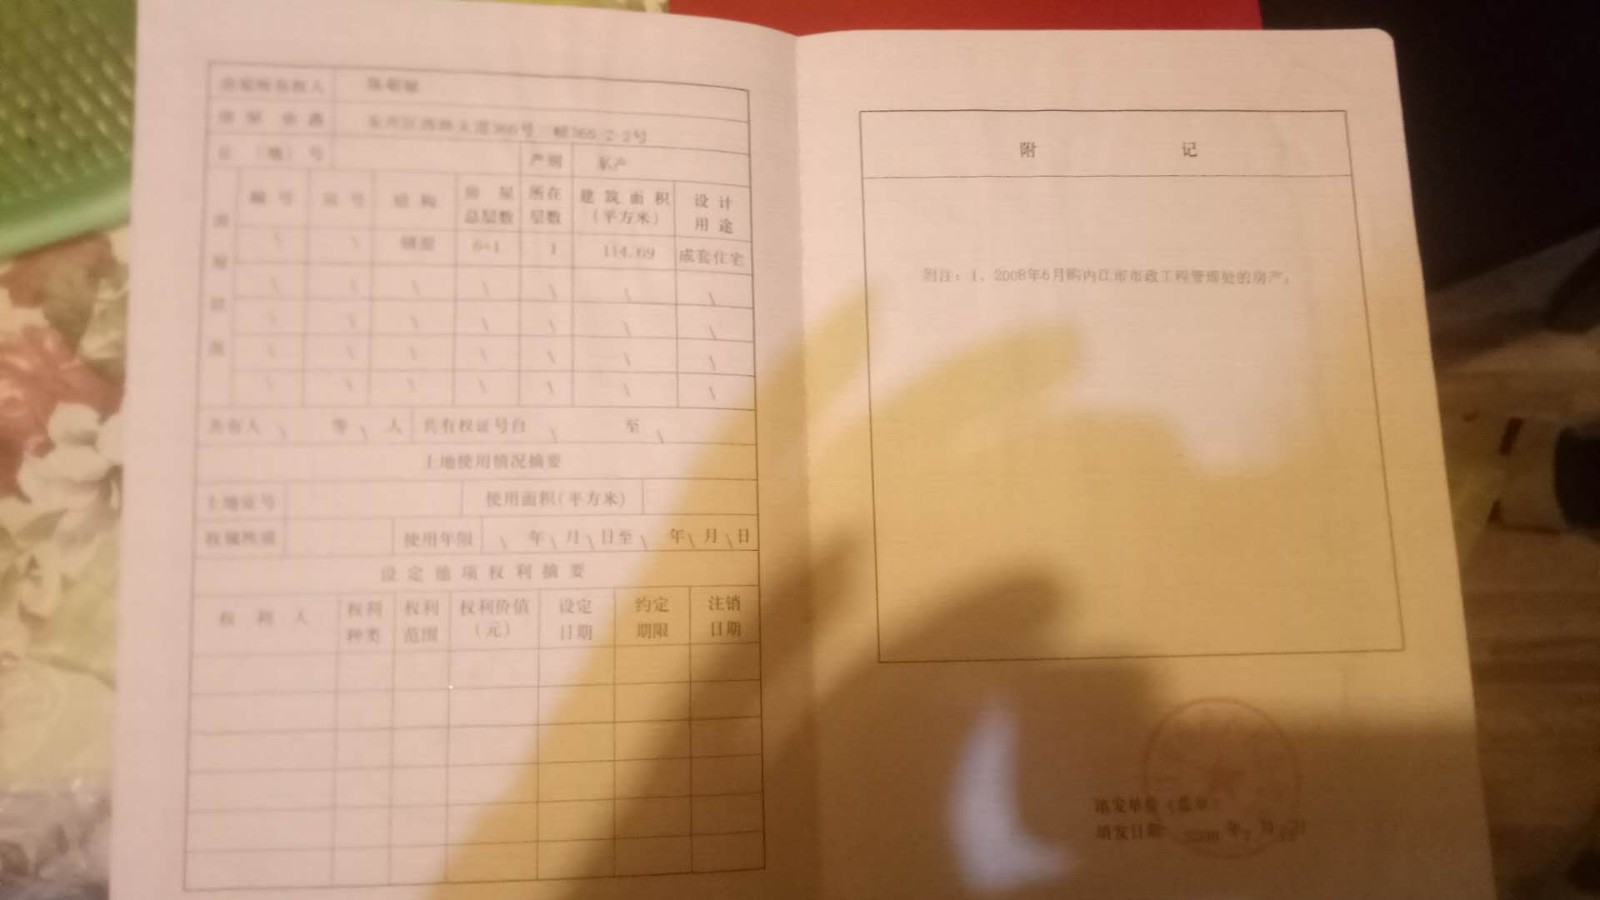 房屋所有权人
房屋坐落 东兴区西林大道366号 幢366-2-2号
丘（地）号 产别 私产
房屋状况
幢号 房号 结构 房屋总层数 所在层数 建筑面积（平方米） 设计用途
\ \ 钢混 6+1 1 114.69 成套住宅
\ \ \ \ \ \ \
\ \ \ \ \ \ \
\ \ \ \ \ \ \
\ \ \ \ \ \ \
共有人 \ 等 \ 人 共有权证号自 \ 至 \
土地使用情况摘要
土地证号 使用面积(平方米)
权属性质 使用年限 \ 年 \ 月 \ 日至 \ 年 \ 月 \ 日
设定他项权利摘要
权利人 权利种类 权利范围 权利价值（元） 设定日期 约定期限 注销日期
附 记
附注：1、2008年6月购内江市市政工程管理处的房产。
填发单位（盖章）
填发日期: 2008 年 7 月